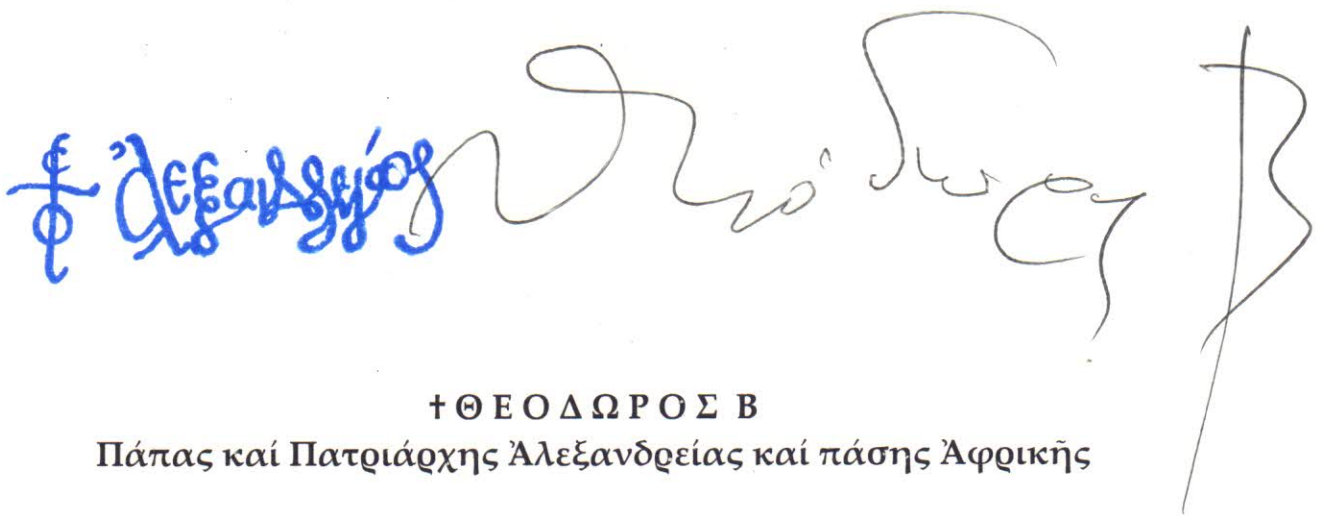 † Ἀλεξανδρείας Θεόδωρος Β
†ΘΕΟΔΩΡΟΣ Β
Πάπας καί Πατριάρχης Ἀλεξανδρείας καί πάσης Ἀφρικῆς